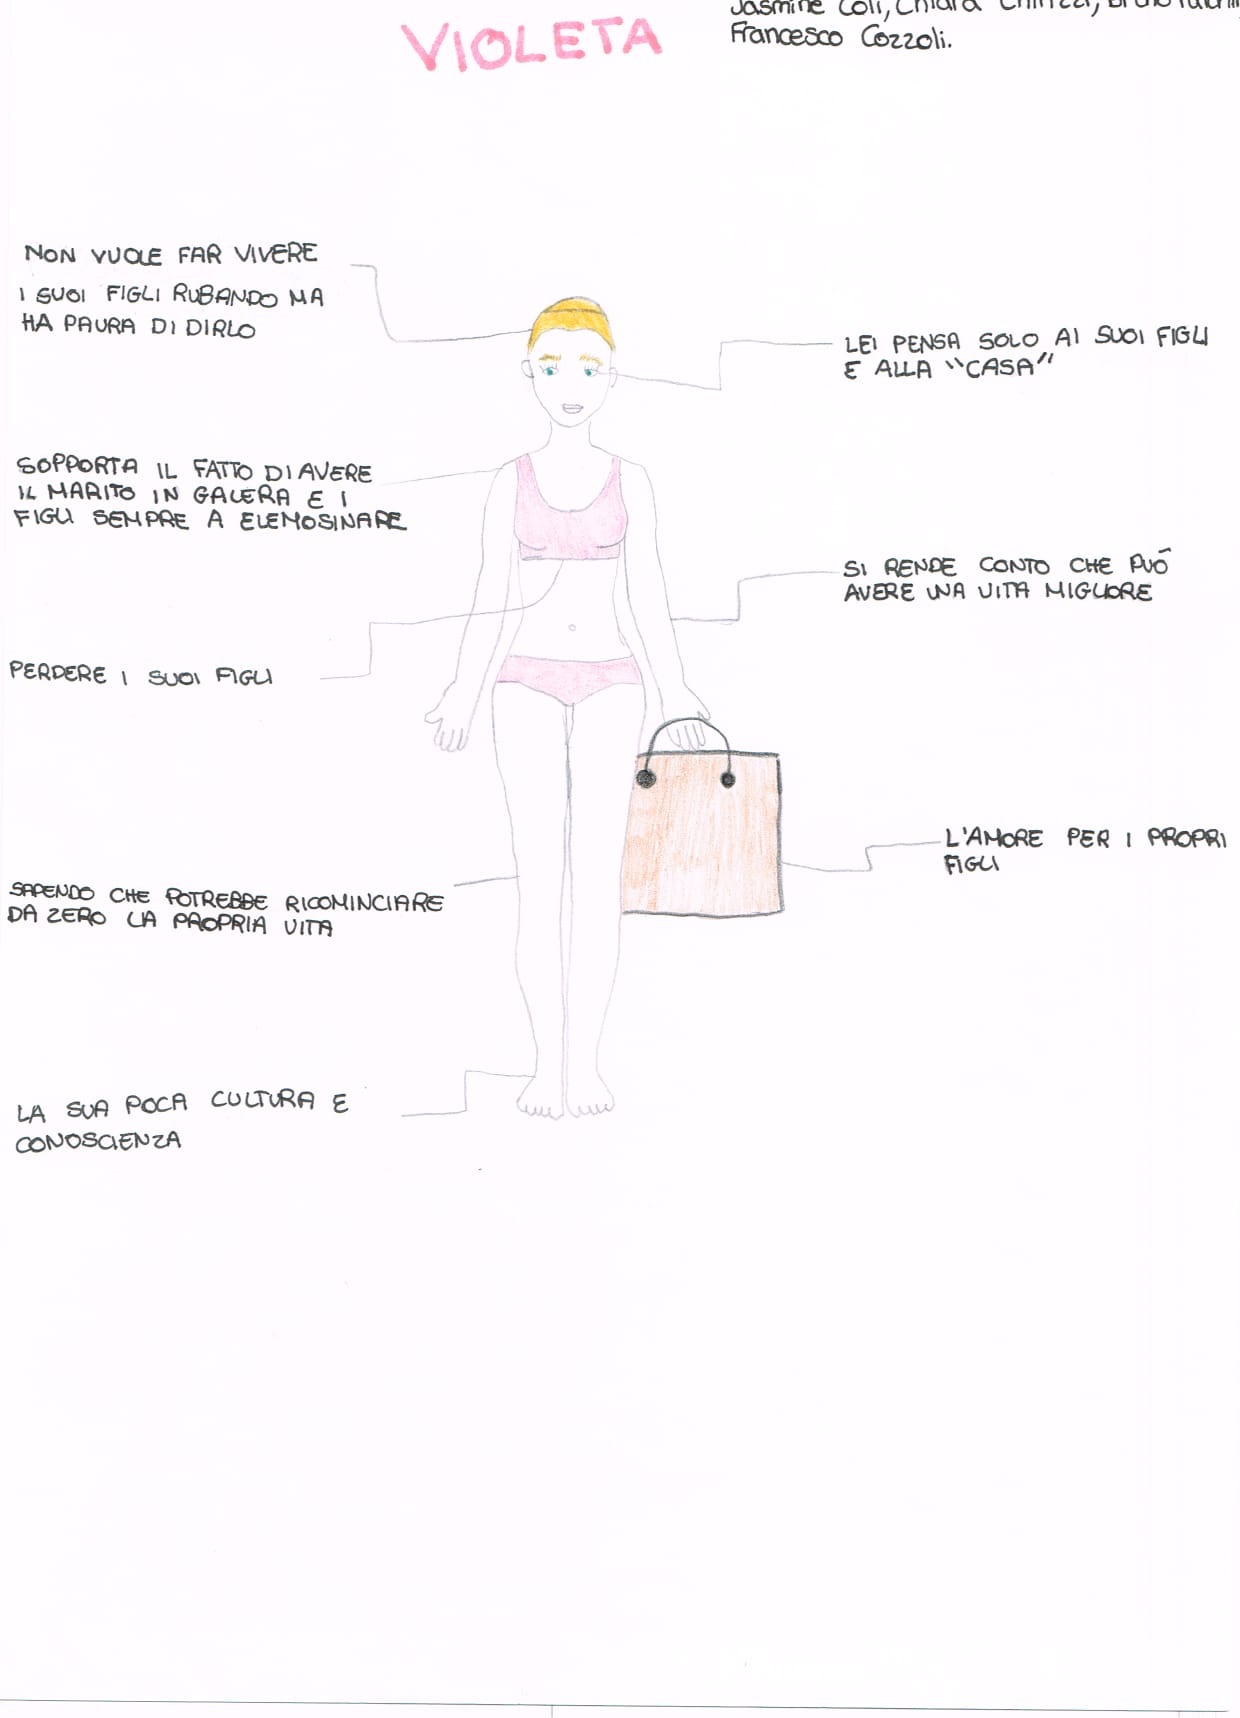 VIOLETA
Jasmine Coli, Chiara
Francesco Cozzoli.
NON VUOLE FAR VIVERE
I SUOI FIGLI RUBANDO MA
HA PAURA DI DIRLO
LEI PENSA SOLO AI SUOI FIGLI
E ALLA "CASA"
SOPPORTA IL FATTO DI AVERE
IL MARITO IN GALERA E I
FIGLI SEMPRE A ELEMOSINARE
SI RENDE CONTO CHE PUÓ
AVERE UNA VITA MIGLIORE
PERDERE I SUOI FIGLI
L'AMORE PER I PROPRI
FIGLI
SAPENDO CHE POTREBBE RICOMINCIARE
DA ZERO LA PROPRIA VITA
LA SUA POCA CULTURA E
CONOSCIENZA